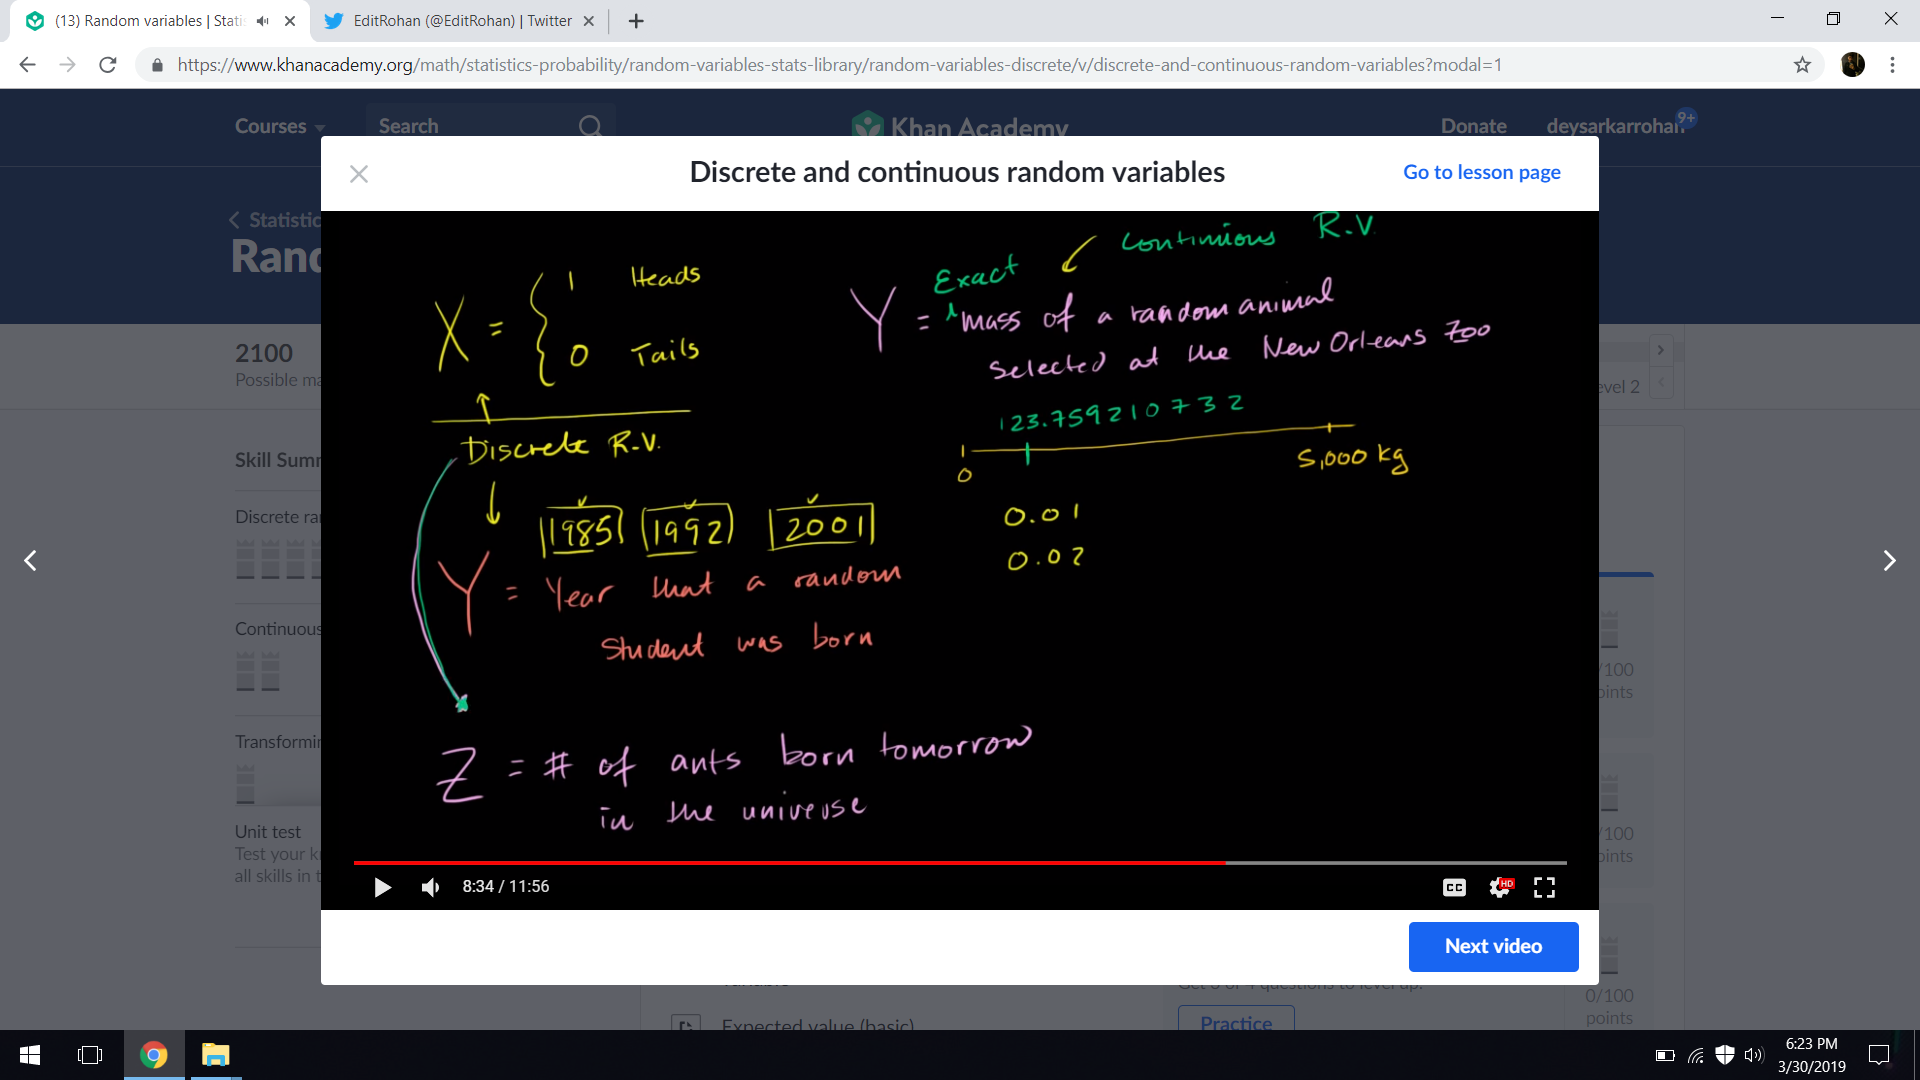 (13) Random variables | Stati
EditRohan (@EditRohan) | Twitter
https://www.khanacademy.org/math/statistics-probability/random-variables-stats-library/random-variables-discrete/v/discrete-and-continuous-random-variables?modal=1
Courses
Search
Khan Academy
Donate
deysarkarrohan
9+
Statistic
Rand
2100
Possible ma
evel 2
Skill Summ
Discrete ran
Continuous
Transformin
Unit test
Test your kn
all skills in t
Discrete and continuous random variables
Go to lesson page
X = { 1 Heads
0 Tails
Discrete R.V.
1985 1992 2001
Y = Year that a random
student was born
Z = # of ants born tomorrow
in the universe
Continuous R.V.
Exact
Y = mass of a random animal
selected at the New Orleans Zoo
123.759210732
0
5,000 kg
0.01
0.02
8:34 / 11:56
CC
HD
Next video
/100
oints
/100
oints
0/100
points
Expected value (basic)
Practice
6:23 PM
3/30/2019